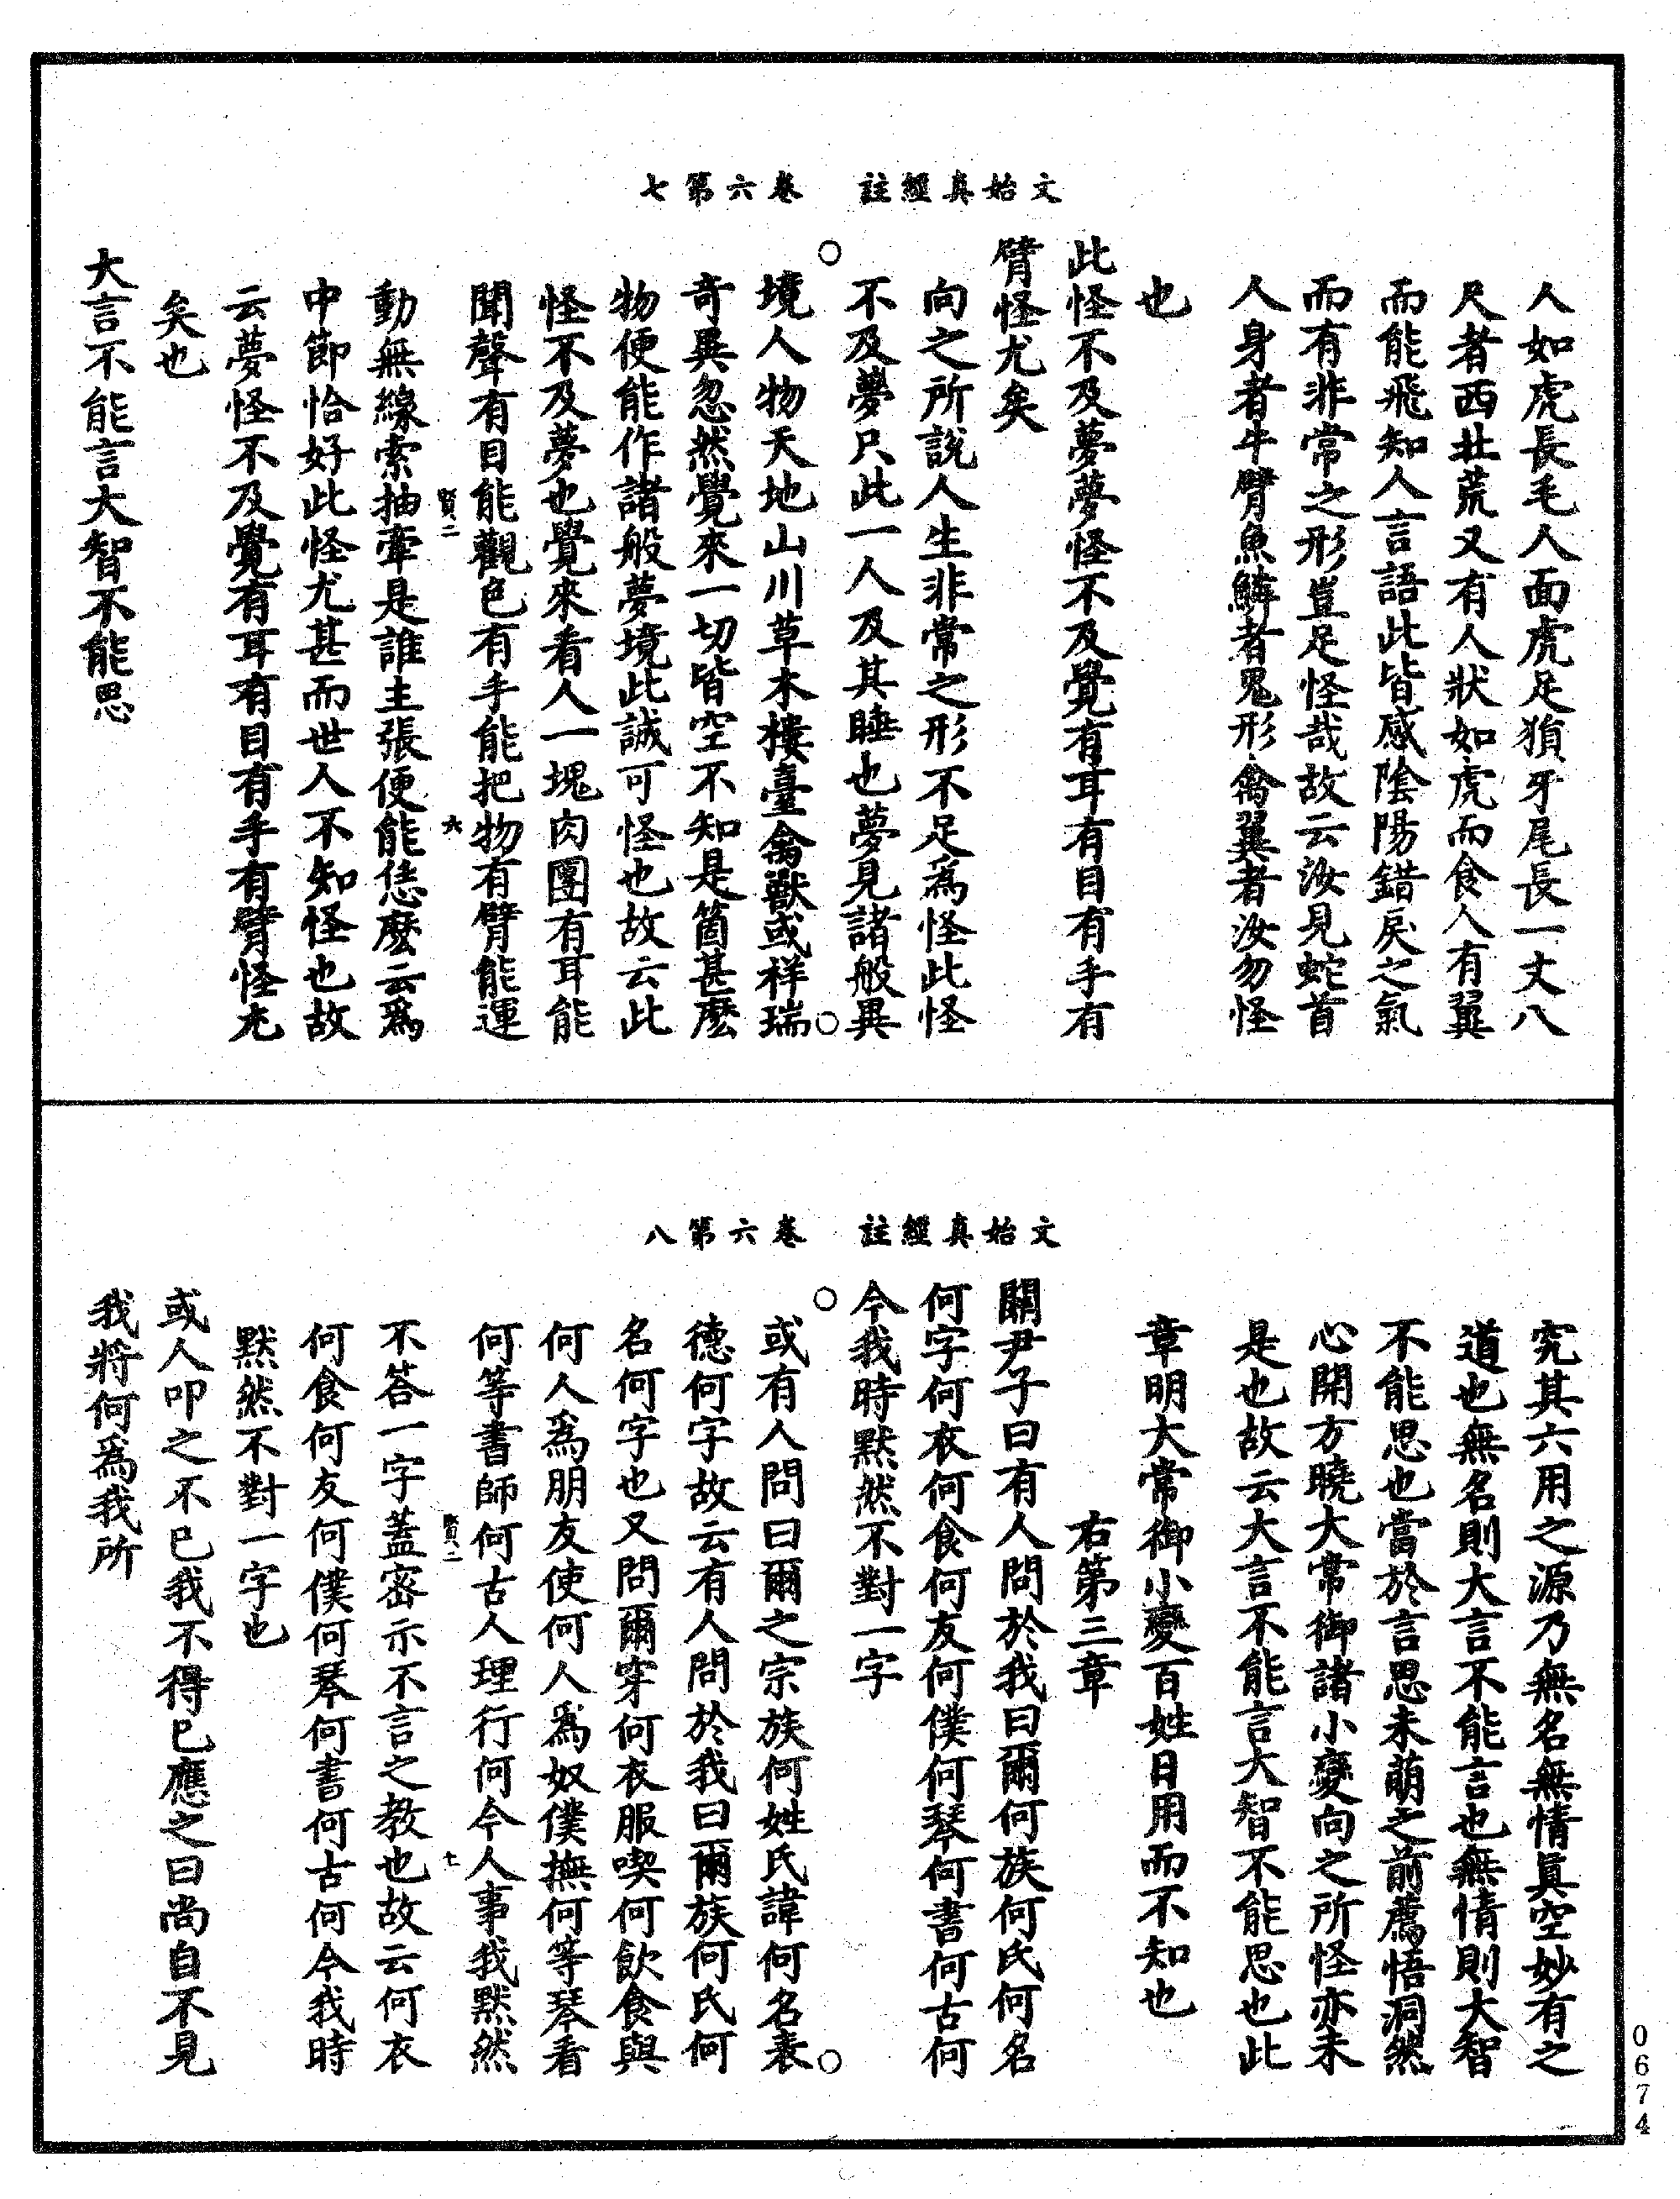 文始真經註　卷六第七
人如虎長毛人面虎足猪牙尾長一丈八
尺者西北荒又有人狀如虎而食人有翼
而能飛知人言語此皆感陰陽錯戾之氣
而有非常之形豈足怪哉故云汝見蛇首
人身者牛臂魚鱗者鬼形禽翼者汝勿怪
也
此怪不及夢夢怪不及覺有耳有目有手有
臂怪尤矣
向之所說人生非常之形不足爲怪此怪
不及夢只此一人及其睡也夢見諸般異
境人物天地山川草木樓臺禽獸或祥瑞
奇異忽然覺來一切皆空不知是箇甚麽
物便能作諸般夢境此誠可怪也故云此
怪不及夢也覺來看人一塊肉團有耳能
聞聲有目能觀色有手能把物有臂能運
賢二　六
動無線索抽牽是誰主張便能恁麽云爲
中節恰好此怪尤甚而世人不知怪也故
云夢怪不及覺有耳有目有手有臂怪尤
矣也
大言不能言大智不能思
文始真經註　卷六第八
究其六用之源乃無名無情真空妙有之
道也無名則大言不能言也無情則大智
不能思也當於言思未萌之前薦悟洞然
心開方曉大常御諸小變向之所怪亦未
是也故云大言不能言大智不能思也此
章明大常御小變百姓日用而不知也
右第三章
關尹子曰有人問於我曰爾何族何氏何名
何字何衣何食何友何僕何琴何書何古何
今我時默然不對一字
或有人問曰爾之宗族何姓氏諱何名表
德何字故云有人問於我曰爾族何氏何
名何字也又問爾穿何衣服喫何飲食與
何人爲朋友使何人爲奴僕撫何等琴看
何等書師何古人理行何今人事我默然
賢二　七
不答一字蓋密示不言之教也故云何衣
何食何友何僕何琴何書何古何今我時
默然不對一字也
或人叩之不已我不得已應之曰尚自不見
我將何爲我所
0674